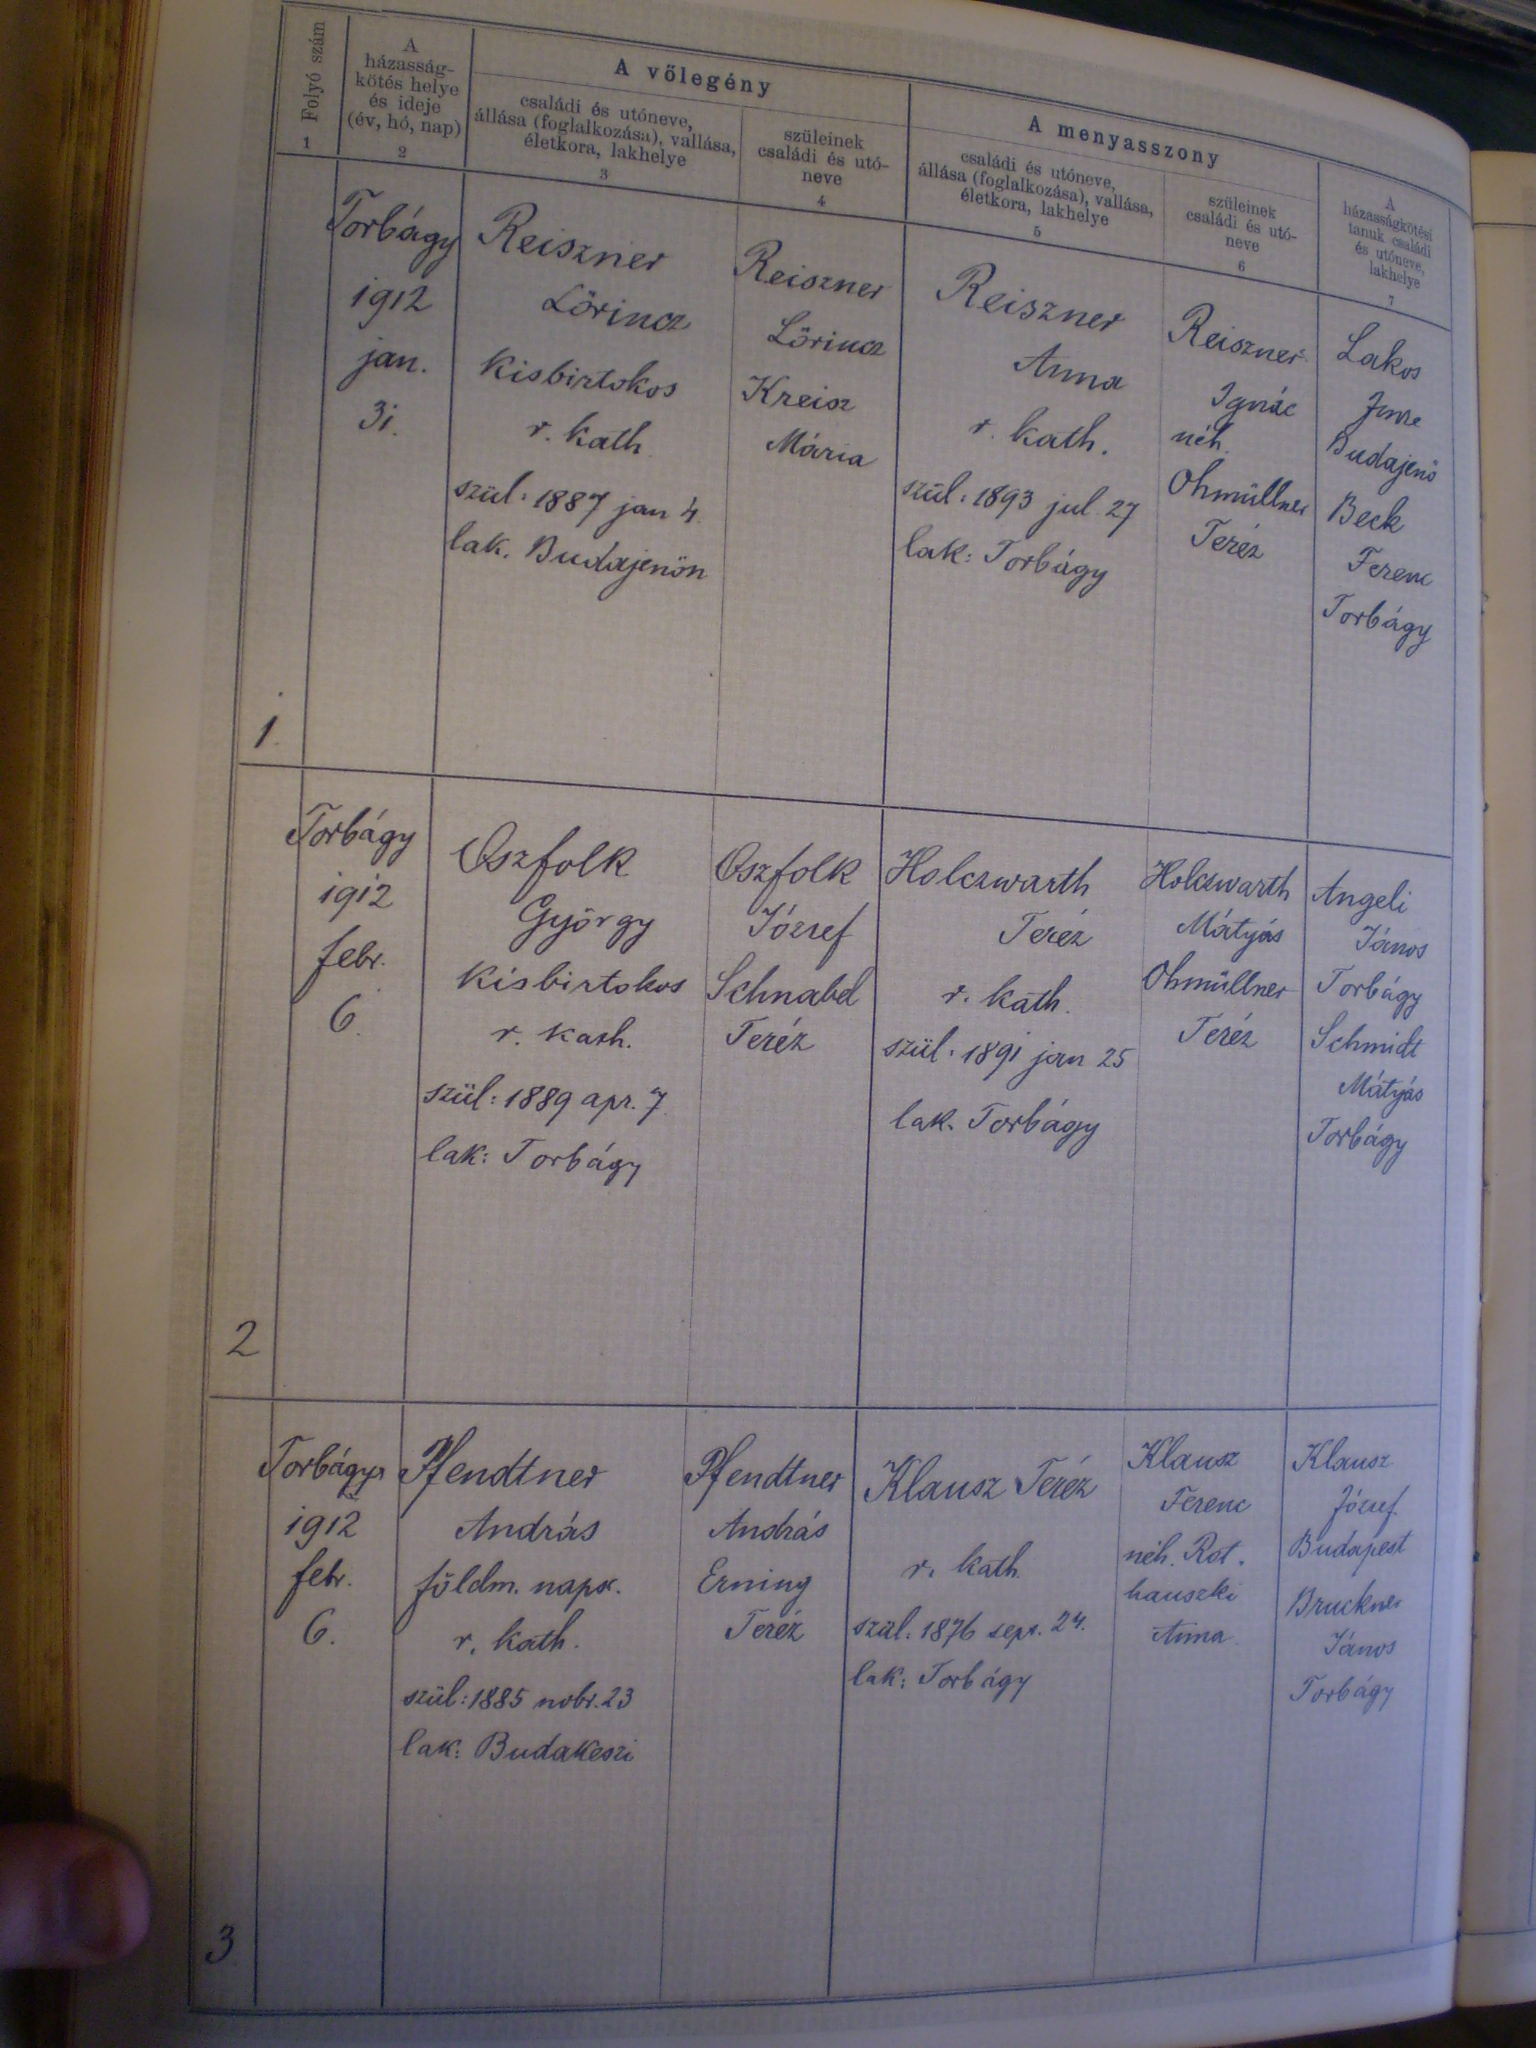 Folyó szám
1
A
házasság-
kötés helye
és ideje
(év, hó, nap)
2
A vőlegény
családi és utóneve,
állása (foglalkozása), vallása,
életkora, lakhelye
3
szüleinek
családi és utó-
neve
4
A menyasszony
családi és utóneve,
állása (foglalkozása), vallása,
életkora, lakhelye
5
szüleinek
családi és utó-
neve
6
A
házasságkötési
tanuk családi
és utóneve,
lakhelye
7
1.
Torbágy
1912
jan.
31.
Reiszner
Lörincz
Kisbirtokos
r. kath.
szül: 1887 jan 4.
lak. Budajenön
Reiszner
Lörincz
Kreisz
Mária
Reiszner
Anna
r. kath.
szül: 1893 jul 27
lak: Torbágy
Reiszner
Ignác
néh.
Ohmüllner
Teréz
Lakos
Imre
Budajenö
Beck
Ferenc
Torbágy
2
Torbágy
1912
febr.
6.
Oszfolk
György
Kisbirtokos
r. kath.
szül: 1889 apr. 7.
lak: Torbágy
Oszfolk
József
Schnabel
Teréz
Holczwarth
Teréz
r. kath.
szül: 1891 jan 25
lak. Torbágy
Holczwarth
Mátyás
Ohmüllner
Teréz
Angeli
János
Torbágy
Schmidt
Mátyás
Torbágy
3
Torbágy
1912
febr.
6.
Pfendtner
András
földm. napsz.
r. kath.
szül: 1885 nobr. 23
lak: Budakeszi
Pfendtner
András
Erning
Teréz
Klausz Teréz
r. kath.
szül: 1876 sept. 24.
lak: Torbágy
Klausz
Ferenc
néh. Rot.
hauszki
Anna
Klausz
József
Budapest
Bruckner
János
Torbágy